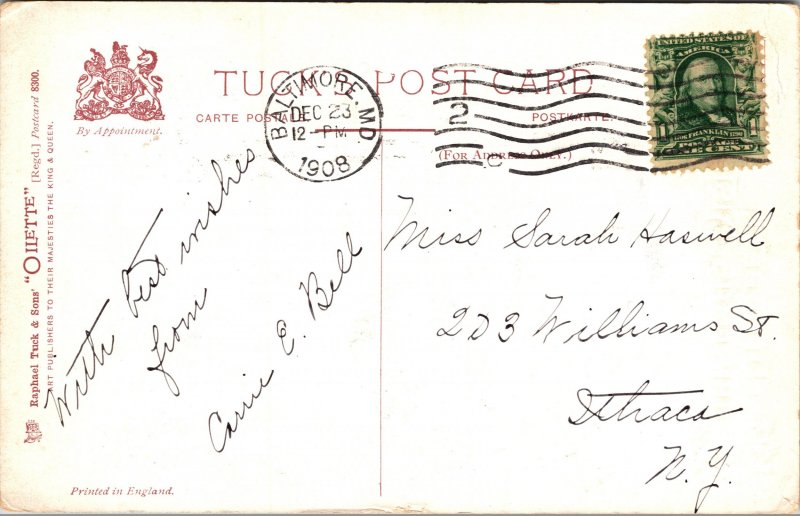 TUCK'S POST CARD
CARTE POSTALE
POSTKARTE
(FOR ADDRESS ONLY.)
By Appointment.
Raphael Tuck & Sons' "OILETTE" [Regd.] Postcard 8300.
ART PUBLISHERS TO THEIR MAJESTIES THE KING & QUEEN.
BALTIMORE, MD
DEC 23
12-PM
1908
2
UNITED STATES OF
AMERICA
FRANKLIN
POSTAGE
1 CENT
With best wishes
from
Carrie E. Bell
Miss Sarah Haswell
203 Williams St.
Ithaca
N.Y.
Printed in England.